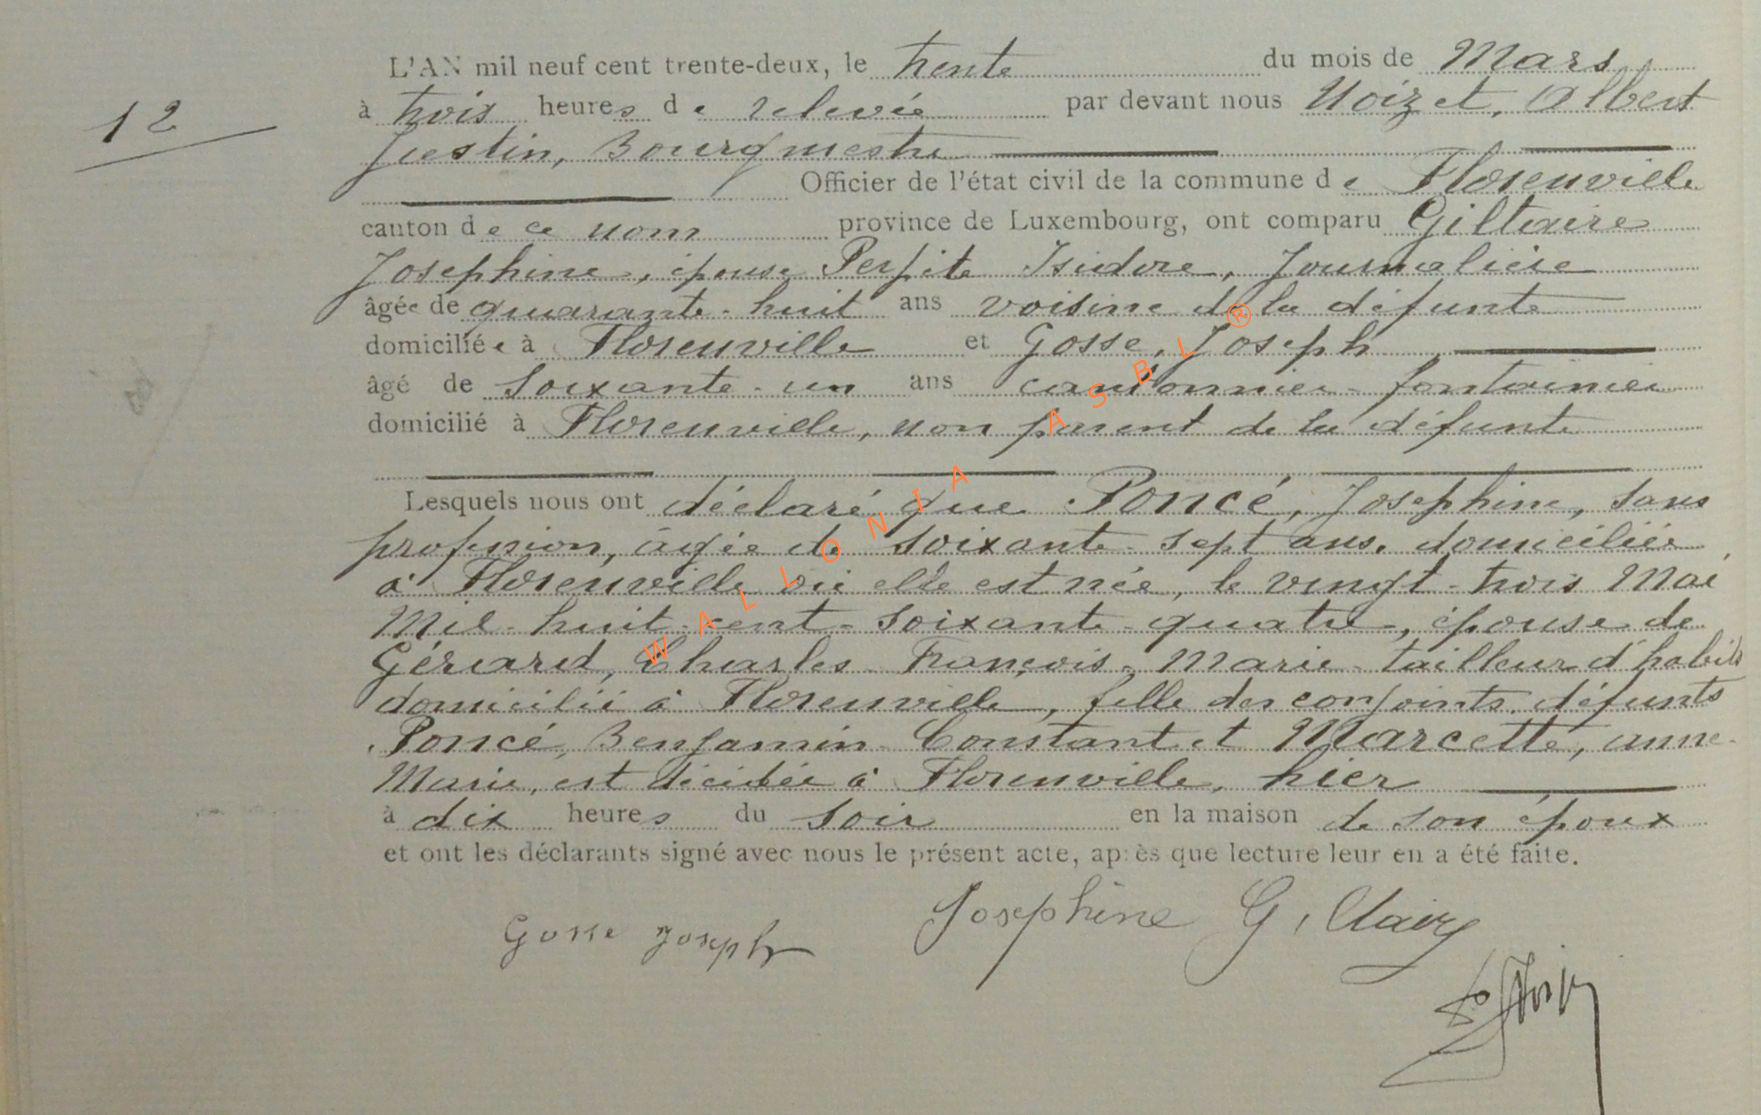 L'AN mil neuf cent trente-deux, le trente du mois de Mars
12
à trois heures de relevée par devant nous Noizet, Albert
Justin, Bourgmestre
Officier de l'état civil de la commune de Florenville
canton de ce nom province de Luxembourg, ont comparu Giltaire
Josephine, épouse Perfite Isidore, Journalière
âgée de quarante-huit ans voisine de la défunte
domiciliée à Florenville et Gosse, Joseph
âgé de soixante-un ans cantonnier-fontainier
domicilié à Florenville, non parent de la défunte
Lesquels nous ont déclaré que Poncé, Josephine, sans
profession, âgée de soixante-sept ans, domiciliée
à Florenville où elle est née, le vingt-trois Mai
Mil-huit-cent-soixante-quatre, épouse de
Gérard, Charles-François-Marie-tailleur d'habits
domicilié à Florenville, fille des conjoints défunts
Poncé, Benjamin-Constant et Marcette, anne-
Marie, est décédée à Florenville, hier
à dix heures du soir en la maison de son époux
et ont les déclarants signé avec nous le présent acte, après que lecture leur en a été faite.
Gosse Joseph Josephine Giltaire
WALLONIA ASBL ®